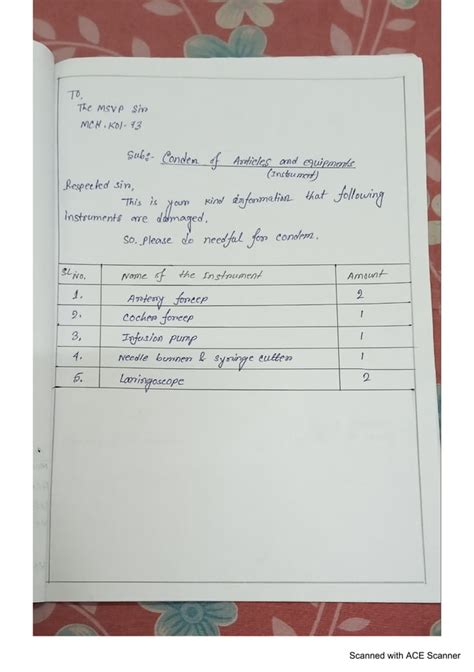 To,
The MSVP Sir
MCH, Kol-73
Sub:- Conden of Articles and equipments
(Instrument)
Respected sir,
This is your kind information that following
instruments are damaged.
So. Please do needful for condem.
SL No. Name of the Instrument Amount
1. Artery forcep 2
2. Cocher forcep 1
3. Infusion pump 1
4. Needle burner & syringe cutter 1
5. Laringoscope 2
Scanned with ACE Scanner